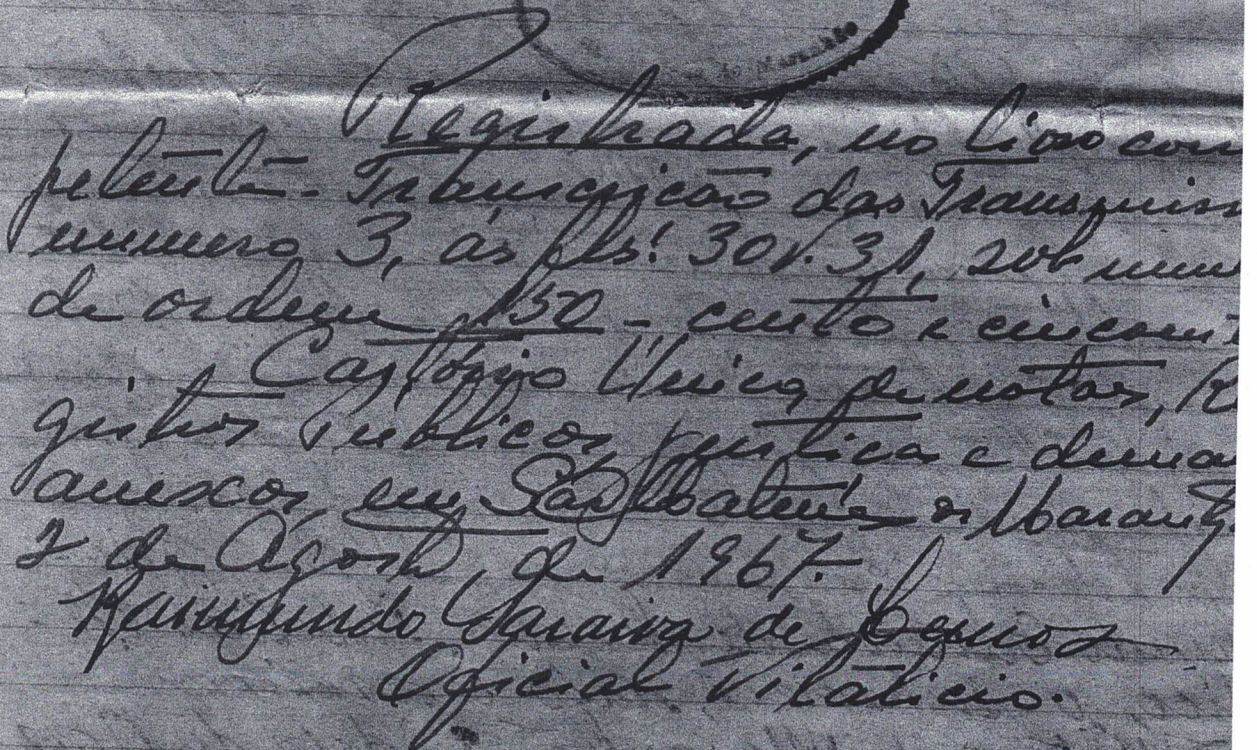 do Maranhão
Registrada, no livro com
petente - Transcrição das Transmiss
numero 3, ás fls: 30v. 31, sob num
de ordem 150 - cento e cincoent
Cartório Único, de notas, Re
gistros Publicos, justica e demai
anexos, em São Mateus do Maranhã
2 de Agosto, de 1967.
Raimundo Saraiva de Lemos
Oficial Vitalicio.